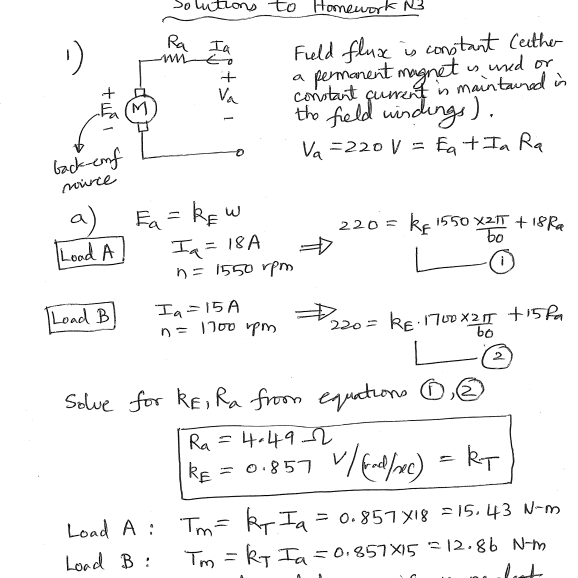 Solutions to Homework N3
1)
Ra Ia
+
Va
-
+
Ea
-
M
back-emf
source
Field flux is constant (either
a permanent magnet is used or
constant current is maintained in
the field windings).
Va = 220 V = Ea + Ia Ra
a) Ea = kE w
Load A
Ia = 18A
n = 1550 rpm
⇒ 220 = kE 1550 × 2π/60 + 18Ra
①
Load B
Ia = 15A
n = 1700 rpm
⇒ 220 = kE · 1700 × 2π/60 + 15Ra
②
Solve for kE, Ra from equations ①, ②
Ra = 4.49 Ω
kE = 0.857 V/(rad/sec) = kT
Load A : Tm = kT Ia = 0.857×18 = 15.43 N-m
Load B : Tm = kT Ia = 0.857×15 = 12.86 N-m